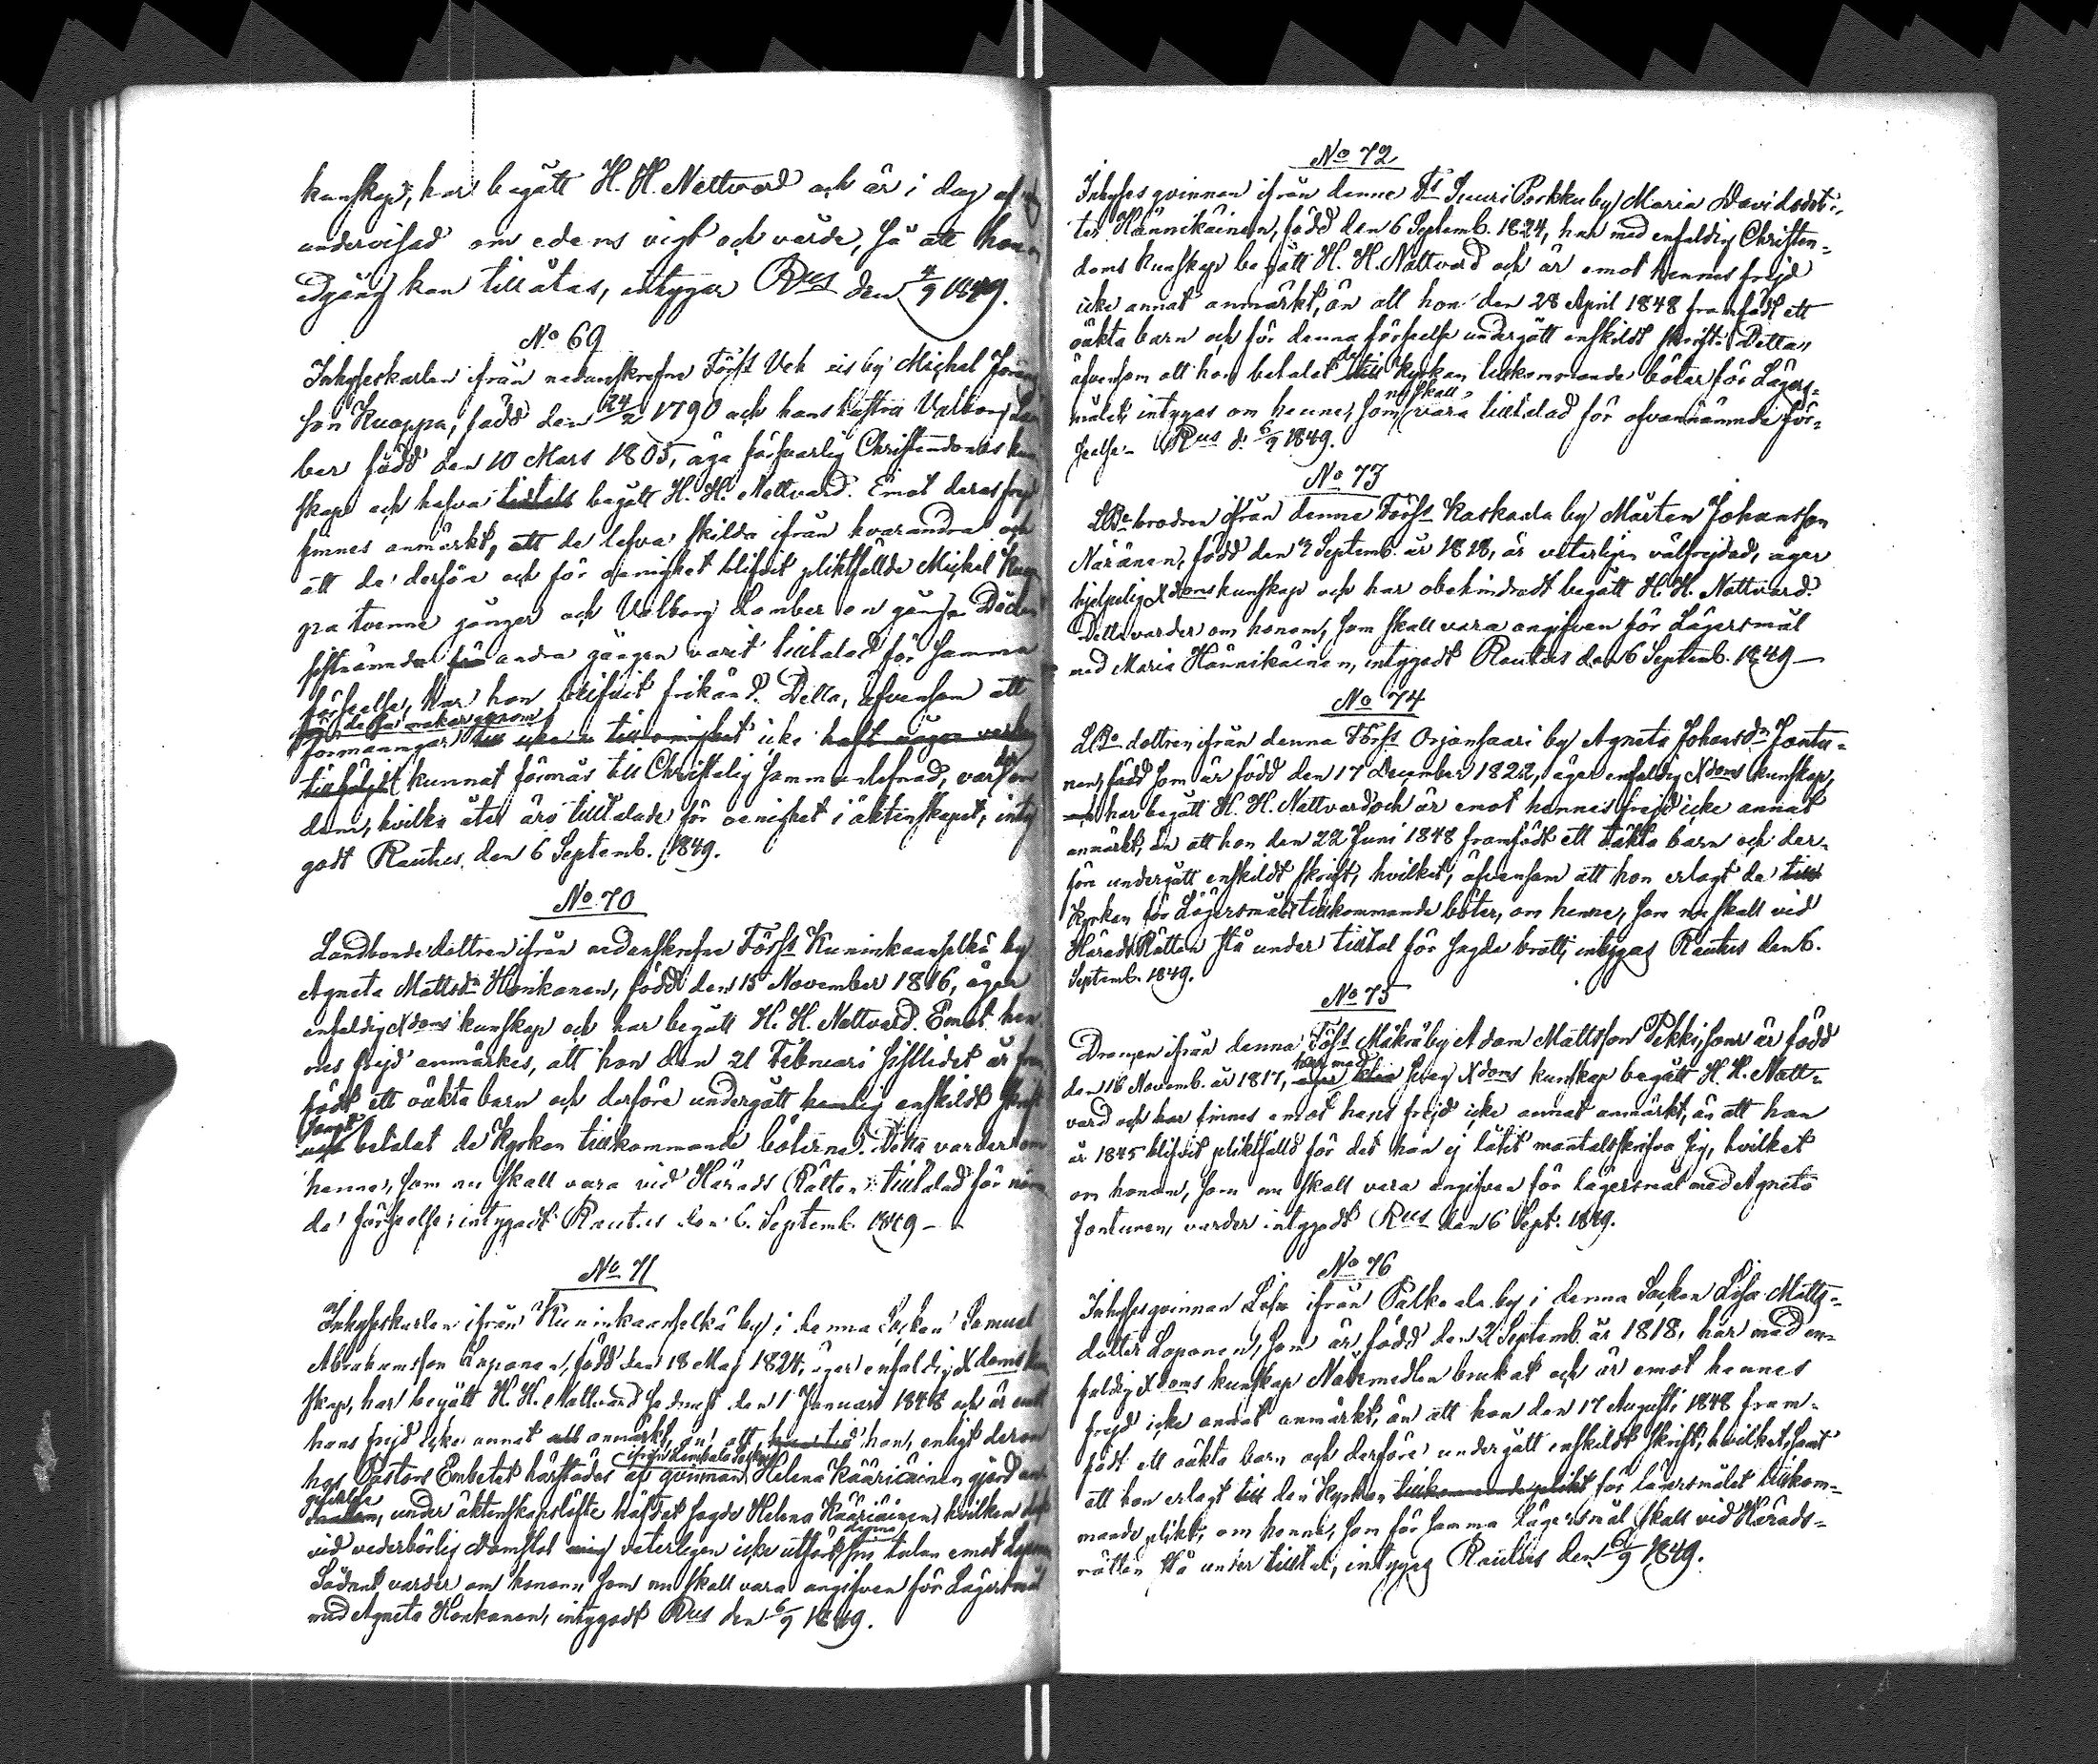 kunskap, har begått H. H. Nattvard och är i dag af
undervisad om edens vigt och värde, så att hans
edgång kan tillåtas, intygar Rus den 4/9 1849.
No 69
Inhyseskarlen ifrån nedanskrefne Förs:t by Michel
son Kuappa, född den 24/2 1790 och hans hustru Valborg
ber född den 10 Mars 1805, äga försvarlig Christendoms kun
skap och hafva begått H. H. Nattvard. Emot deras frejd
finnes anmärkt, att de lefva skilda ifrån hvarandra och
att de derföre och för oenighet blifvit pliktfällde Michel Kuap
pa tvenne gånger och Valborg Lember en gång. Då den
sistnämnda andra gången varit tilltalad för samma
förseelse, har hon blifvit frikänd. Detta, äfvensom att
dessa makar genom
förmaningar icke
kunnat förmås till Christelig sammanlefnad, varder om
dem, hvilka åter äro tilltalade för oenighet i äktenskapet, inty
gadt Rautus den 6 Septemb. 1849.
No 70
Landbonde dottren ifrån nedanskrefne Förs:t Kuninkaanselkä by
Agneta Mattsdr Honkanen, född den 15 November 1816, äger
enfaldig Xdoms kunskap och har begått H. H. Nattvard. Emot hen
nes frejd anmärkes, att hon den 21 Februari sistlidet år fram
födt ett oäkta barn och derföre undergått enskildt skrift
samt
betalat de Kyrkan tillkommande böterne. Detta varder om
henne, som nu skall vara vid Härads Rätten tilltalad för näm
da förseelse; intygadt Rautus den 6. Septemb. 1849 -
No 71
Inhyseskarlen ifrån Kuninkaanselkä by i denna Socken Samuel
Abrahamsson Loponen, född den 18 Maj 1824, äger enfaldig Xdoms kun
skap, har begått H. H. Nattvard sednast den 1 Januari 1848 och är emot
hans frejd icke annat anmärkt, än att han, enligt derom
hos Pastors Embetet af qvinnan Helena Kääriäinen gjord an
under äktenskapslöfte häfdat sagde Helena Kääriäinen, hvilken
denna
vid vederbörlig domstol veterligen icke utfört sin talan emot Loponen
Sådant varder om honom som nu skall vara angifven för Lägersmål
med Agneta Honkanen, intygadt Rus den 6/9 1849.
No 72
Inhyses qvinnan ifrån denne Fs Suuri Porkku by Maria Davidsdot-
ter Hännikäinen, född den 6 Septemb. 1824, har med enfaldig Christen-
doms kunskap begått H. H. Nattvard och är emot hennes frejd
icke annat anmärkt, än att hon den 28 April 1848 framfödt ett
oäkta barn och för denna förseelse undergått enskildt skrift. Detta,
äfvensom att hon betalat de Kyrkan tillkommande böter för Lägers-
nu skall
målet, intygas om henne, som vara tilltalad för ofvannämnde för-
seelse - Rus d. 6/9 1849.
No 73
LBo brodren ifrån denne Förs:t Kaskaala by Mårten Johansson
Näränen, född den 3 Septemb. år 1818, är veterligen välfrejdad, äger
hjelpelig Xdoms kunskap och har obehindradt begått H. H. Nattvard.
Detta varder om honom, som skall vara angifven för Lägersmål
med Maria Hännikäinen, intygadt Rautus den 6 Septemb. 1849 —
No 74
LBo dottren ifrån denna Förs:t Orjansaari by Agneta Johansdr Jontu-
nen, som är född den 17 December 1822, äger enfaldig Xdoms kunskap,
har begått H. H. Nattvard och är emot hennes frejd icke annat
anmärkt, än att hon den 22 Juni 1848 framfödt ett oäkta barn och der-
före undergått enskildt skrift, hvilket, äfvensom att hon erlagt de till
Kyrkan för Lägersmålet tillkommande böter, om henne, som nu skall vid
Härads Rätten stå under tilltal för sagde brott, intygas Rautus den 6.
Septemb. 1849.
No 75
Drängen ifrån denna Förs:t Mäkrä by Adam Mattsson Pekki, som är född
har med
den 16 Novemb. år 1817, svag Xdoms kunskap begått H. H. Natt-
vard och har finnes emot hans frejd icke annat anmärkt, än att han
år 1845 blifvit pliktfälld för det han ej låtit mantalsskrifva sig, hvilket
om honom, som nu skall vara angifven för lägersmål med Agneta
Jontunen, varder intygadt Rus den 6 Sept. 1849.
No 76
Inhysesqvinnan Lisa ifrån Palkeala by i denna Socken Lisa Matts-
dotter Loponen, som är född den 2 Septemb. år 1818, har med en-
faldig Xdoms kunskap Nådemedlen brukat och är emot hennes
frejd icke annat anmärkt, än att hon den 17 Augusti 1848 fram-
födt ett oäkta barn och derföre undergått enskildt skrift, hvilket, samt
att hon erlagt till den Kyrkan tillkommande plikt för lägersmålet tillkom-
mande plikt, om henne, som för samma lägersmål skall vid Härads-
rätten stå under tilltal, intygas Rautus den 6/9 1849.